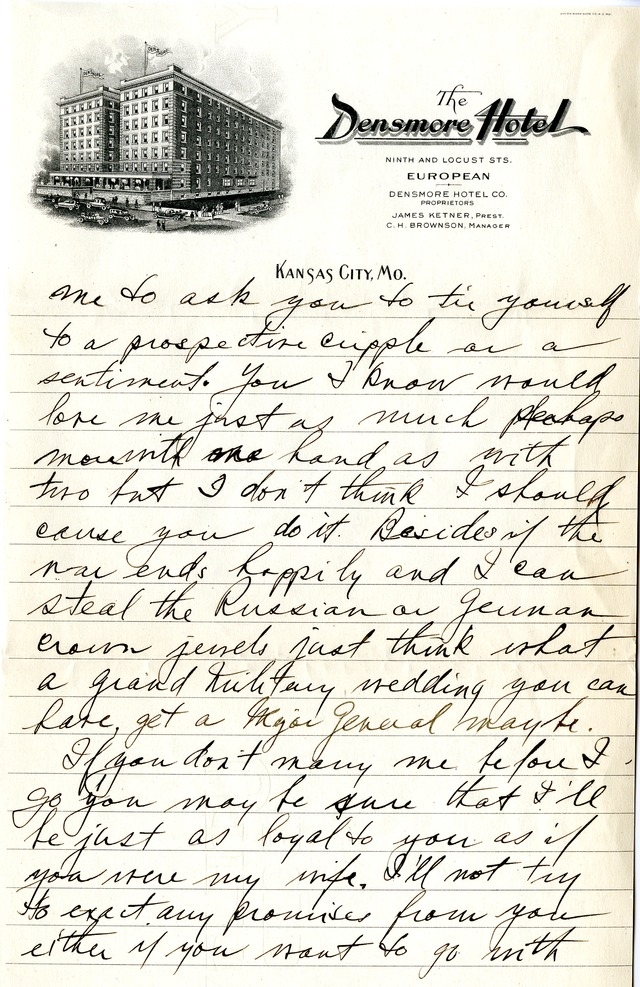 The
Densmore Hotel
NINTH AND LOCUST STS.
EUROPEAN
DENSMORE HOTEL CO.
PROPRIETORS
JAMES KETNER, PREST.
C. H. BROWNSON, MANAGER
KANSAS CITY, MO.
me to ask you to tie yourself
to a prospective cripple or a
sentiment. You I know would
love me just as much perhaps
more with one hand as with
two but I don't think I should
cause you do it. Besides if the
war ends happily and I can
steal the Russian or German
crown jewels just think what
a grand military wedding you can
have, get a Major General maybe.
If you don't marry me before I
go you may be sure that I'll
be just as loyal to you as if
you were my wife. I'll not try
to exact any promises from you
either if you want to go with